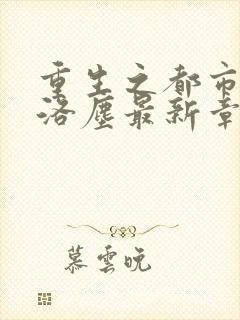 重生之都市
洛塵最新章
慕雲晚